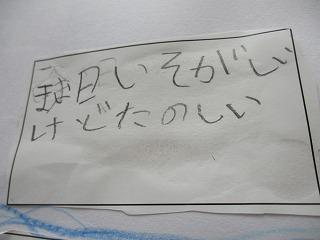 毎日いそがしい
けどたのしい